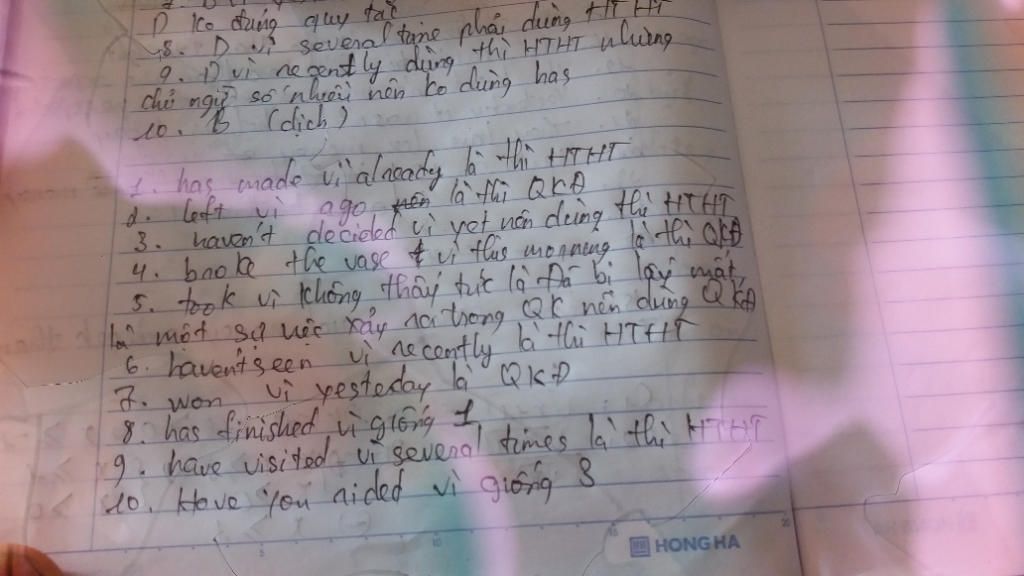 D ko đúng quy tắc
8. D vì several time phải dùng HTHT
9. D vì recently dùng thì HTHT nhưng
chủ ngữ số nhiều nên ko dùng has
10. B (dịch)
1. has made vì already là thì HTHT
2. left vì ago là thì QKĐ
3. haven't decided vì yet nên dùng thì HTHT
4. broke the vase vì this morning là thì QKĐ
5. took vì không thấy tức là Đã bị lấy mất,
là một sự việc xảy ra trong QK nên dùng QKĐ
6. haven't seen vì recently là thì HTHT
7. won vì yesteday là QKĐ
8. has finished vì giống 1
9. have visited vì several times là thì HTHT
10. Have you rided vì giống 8
HONG HA
5
10
15
20